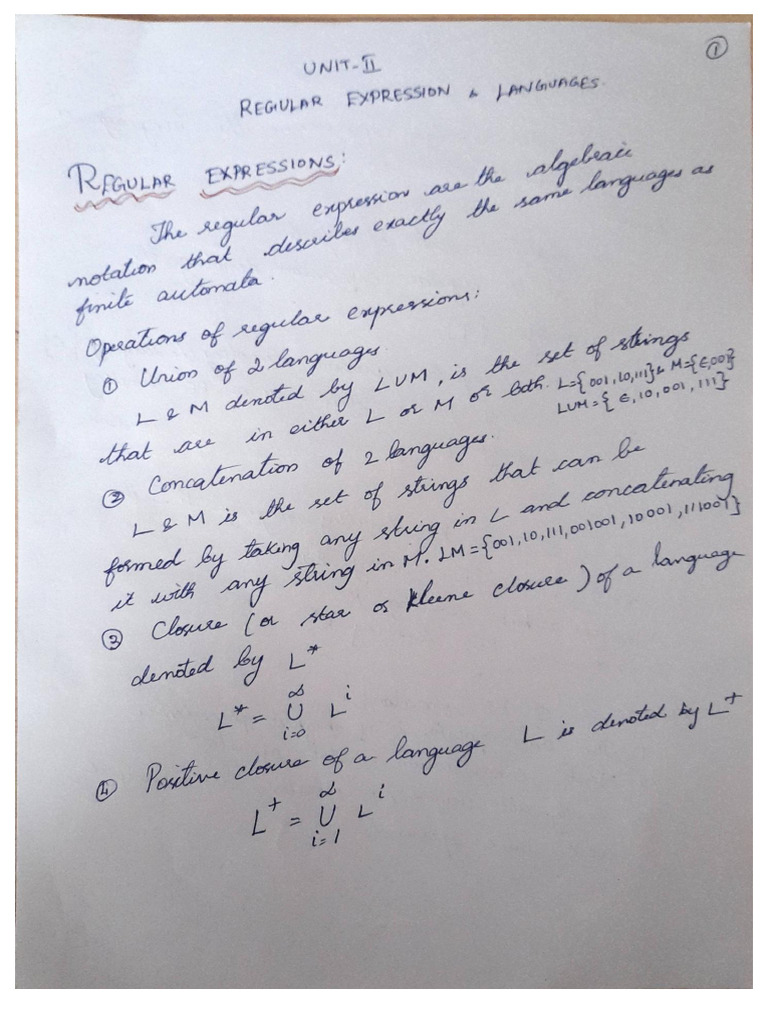 ①
UNIT-II
REGULAR EXPRESSION & LANGUAGES.
REGULAR EXPRESSIONS:
The regular expression are the algebraic
notation that describes exactly the same languages as
finite automata.
Operations of regular expressions:
① Union of 2 languages.
L & M denoted by LUM, is the set of strings
that are in either L or M or both. L={001,10,111} & M={ϵ,001}
LUM={ϵ,10,001,111}
② Concatenation of 2 languages.
L & M is the set of strings that can be
formed by taking any string in L and concatenating
it with any string in M. LM={001,10,111,001001,10001,111001}
③ Closure (or star or kleene closure) of a language
denoted by L*
L* = ∞ U i=0 L^i
④ Positive closure of a language L is denoted by L⁺
L⁺ = ∞ U i=1 L^i